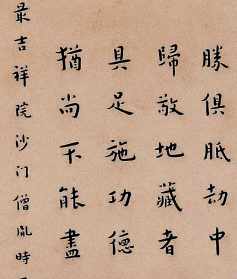 勝俱胝劫中
歸敬地藏者
具足施功德
猶尚不能盡
最吉祥院沙门僧胤時